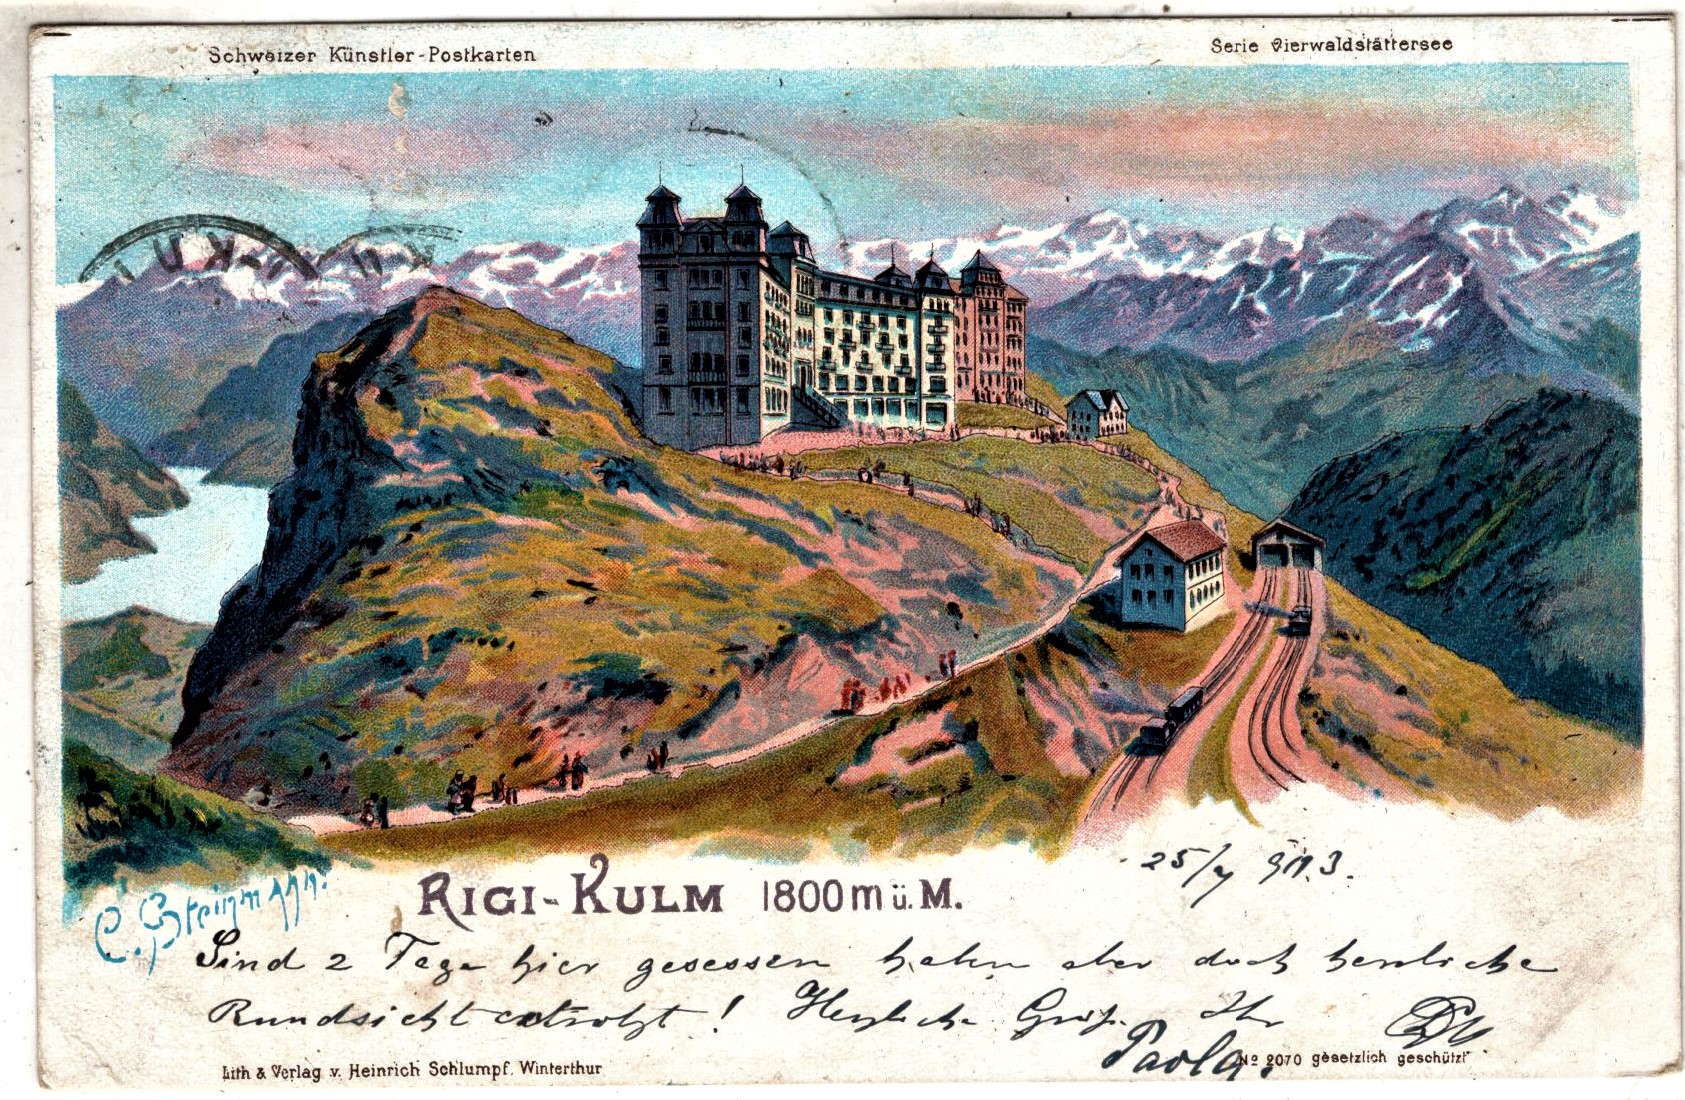 Schweizer Künstler-Postkarten
Serie Vierwaldstättersee
C. Steinmann.
RIGI-KULM 1800 m ü. M.
Sind 2 Tage hier gesessen haben aber doch herrliche
Rundsicht ertrotzt! Herzliche Grüße Ihr
Paola.
Lith & Verlag v. Heinrich Schlumpf. Winterthur
No 2070 gesetzlich geschützt